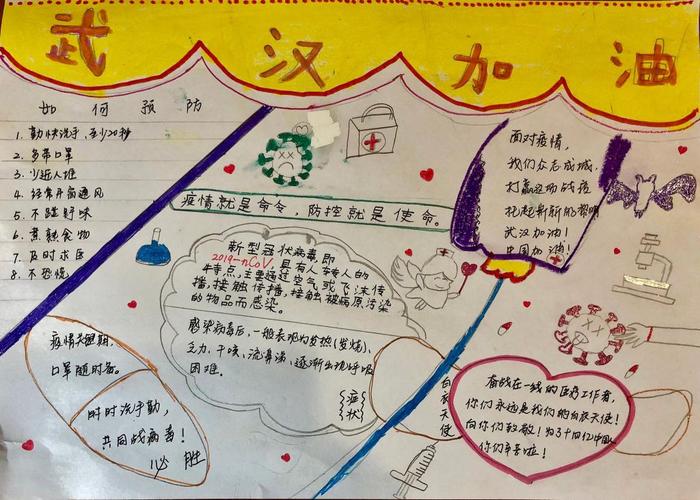 武汉加油
如何预防
1. 勤快洗手,至少20秒
2. 多带口罩
3. 少近人堆
4. 经常开窗通风
5. 不踩野味
6. 煮熟食物
7. 及时求医
8. 不恐慌
疫情就是命令,防控就是使命。
面对疫情,
我们众志成城,
打赢这场战役
托起新新的黎明
武汉加油!
中国加油!
新型冠状病毒,即
2019-nCoV,具有人传人的
特点,主要通过空气或飞沫传
播,接触传播,接触被病原污染
的物品而感染。
感染病毒后,一般表现为发热(发烧)、
乏力、干咳、流清涕、逐渐出现呼吸
困难。
{症}
{状}
白衣天使
疫情关键期,
口罩随时备。
时时洗手勤,
共同战病毒!
必胜
奋战在一线的医疗工作者,
你们永远是我们的白衣天使!
向你们致敬!为了十四亿中国
你们辛苦啦!